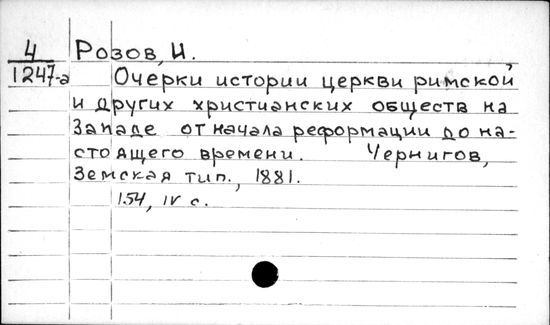 4 Розов, И.
1247-а Очерки истории церкви римской
и других христианских обществ на
Западе от начала реформации до на-
стоящего времени. Чернигов,
Земская тип., 1881.
154, IV с.